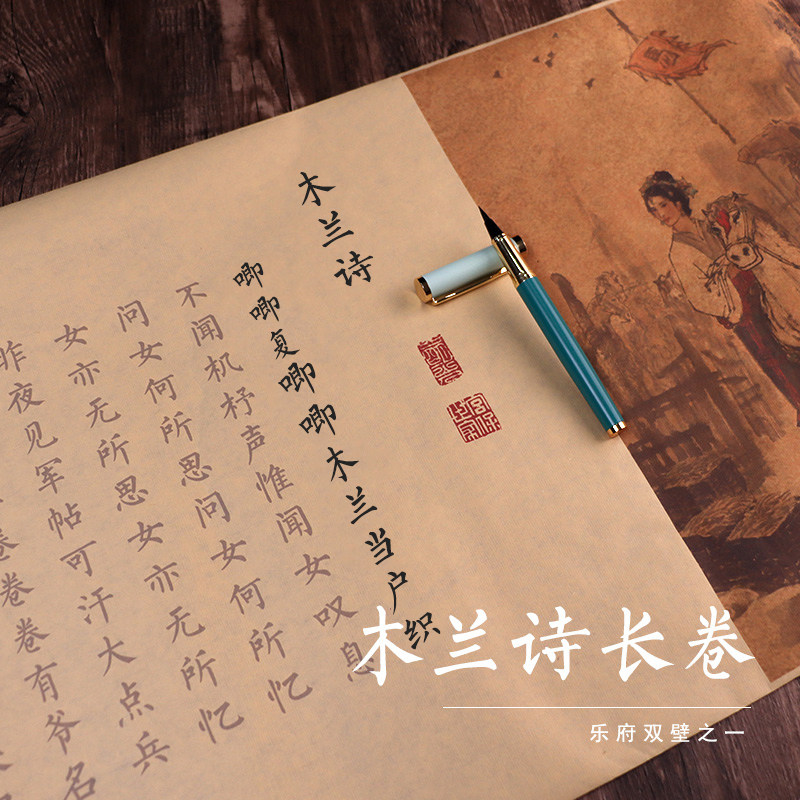 木兰诗
唧唧复唧唧木兰当户织
不闻机杼声惟闻女叹息
问女何所思问女何所忆
女亦无所思女亦无所忆
昨夜见军帖可汗大点兵
卷卷卷有爷名
木兰诗长卷
乐府双壁之一